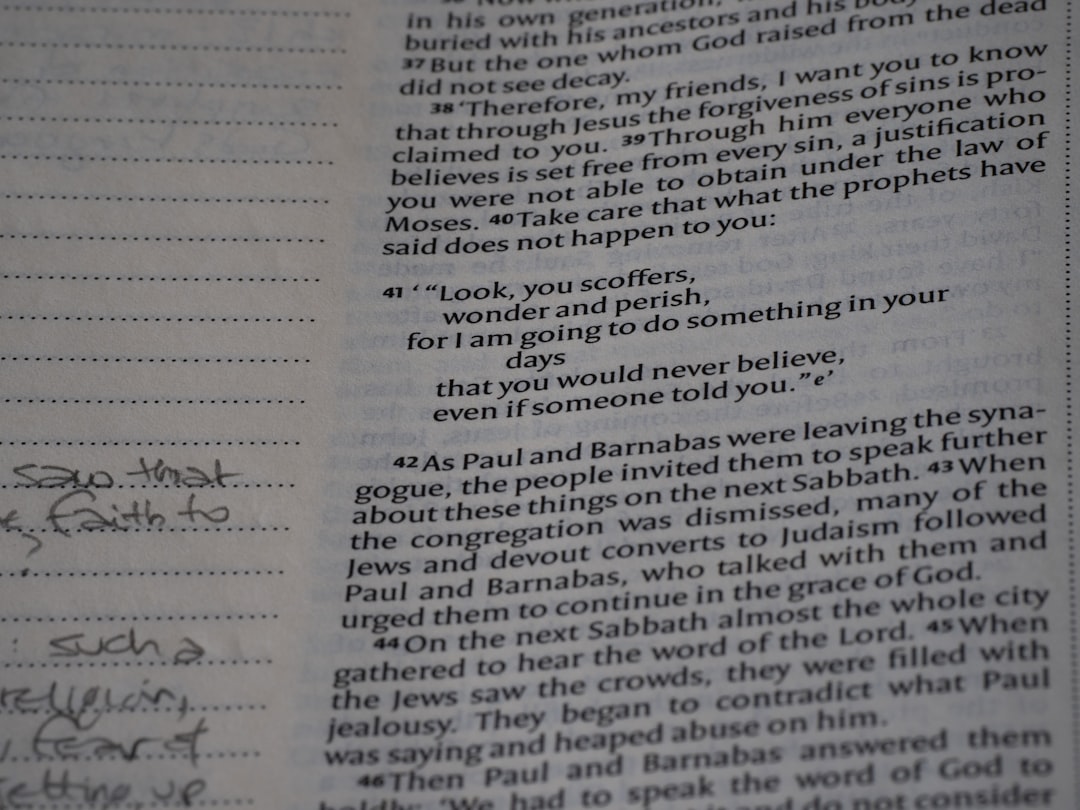 in his own generation,
buried with his ancestors and his body
37 But the one whom God raised from the dead
did not see decay.
38 ‘Therefore, my friends, I want you to know
that through Jesus the forgiveness of sins is pro-
claimed to you. 39 Through him everyone who
believes is set free from every sin, a justification
you were not able to obtain under the law of
Moses. 40 Take care that what the prophets have
said does not happen to you:
41 ‘ “Look, you scoffers,
wonder and perish,
for I am going to do something in your
days
that you would never believe,
even if someone told you.” e’
42 As Paul and Barnabas were leaving the syna-
gogue, the people invited them to speak further
about these things on the next Sabbath. 43 When
the congregation was dismissed, many of the
Jews and devout converts to Judaism followed
Paul and Barnabas, who talked with them and
urged them to continue in the grace of God.
44 On the next Sabbath almost the whole city
gathered to hear the word of the Lord. 45 When
the Jews saw the crowds, they were filled with
jealousy. They began to contradict what Paul
was saying and heaped abuse on him.
46 Then Paul and Barnabas answered them
boldly: ‘We had to speak the word of God to
and do not consider
saw that
faith to
?
: such a
religion,
fear of
etting up